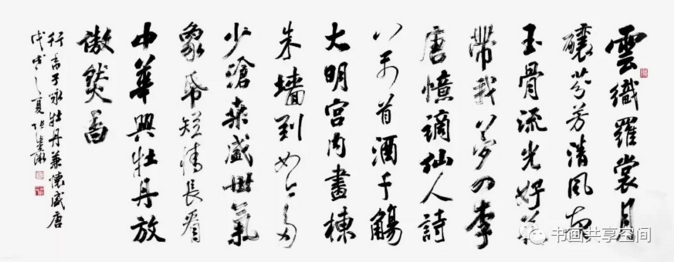 雲織羅裳月
釀芬芳清風
玉骨流光好花
帶我入夢回李
唐憶謫仙人詩
首酒千觴
大明宮内畫棟
朱墻到如今多
少滄桑盛世氣
象短情長看
中華興牡丹放
傲然
行香子咏牡丹兼懷盛唐
戊戌之夏
书画共享空间